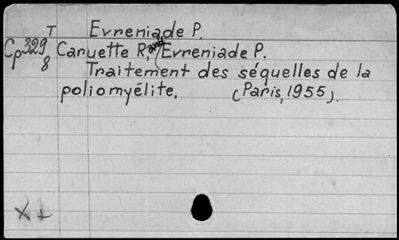 T Evreniade P.
Cp 329 Caruette R, and Evreniade P.
8 Traitement des séquelles de la
poliomyélite. (Paris, 1955).